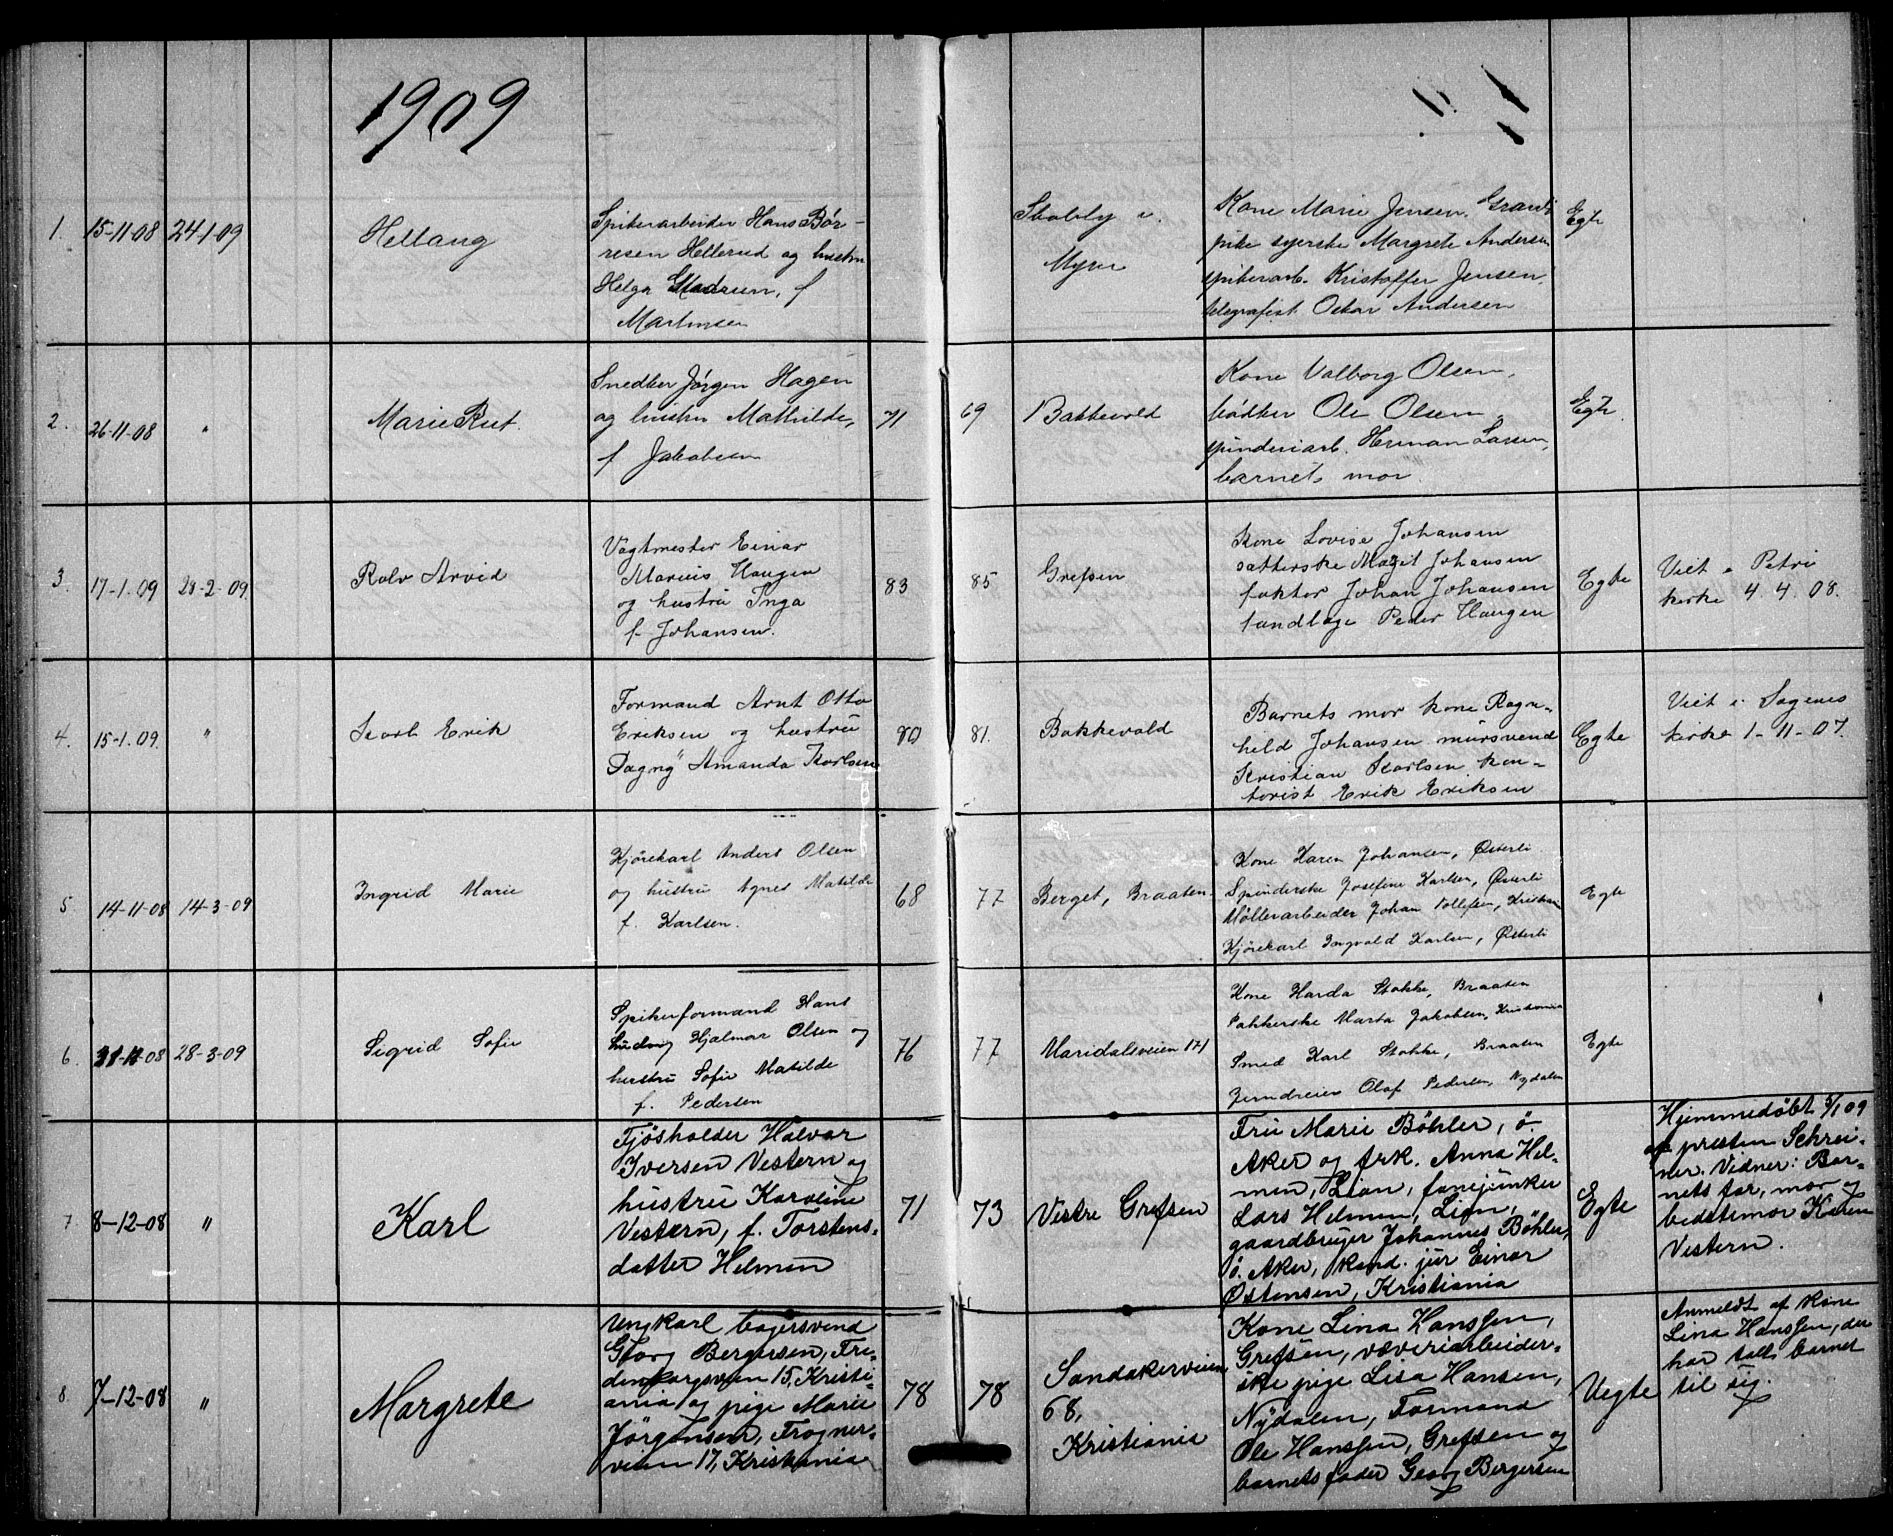 1909
1. 15-11-08 24-1-09
Hellaug
Spikerarbeider Hans Bør-
resen Hellerud og hustru
Helga f
Martinsen
Myrer
Kone Marie Jensen.
pike syerske Margrete Andersen
spikerarb. Kristoffer Jensen,
telegrafist Oskar Andersen
Egte
2. 26-11-08 "
Marie Rut.
Snedker Jörgen Hagen
og hustru Mathilde,
f Jakobsen
71
69
Bakkevold
Kone Valborg Olsen,
bödker Ole Olsen,
spinderiarb. Herman Larsen,
barnets mor.
Egte
3. 17-1.09 28-2-09.
Rolv Arvid
Vagtmester Einar
Marius Haugen
og hustru Inga
f. Johansen.
83
85
Grefsen
Kone Lovise Johansen
sætterske Magit Johansen
faktor Johan Johansen
tandlæge Peder Haugen
Egte
Viet i Petri
kirke 4.4.08.
4. 15-1.09. "
Karl Erik
Formand Arnt Otto
Eriksen og hustru
Dagny Amanda Karlsen
80
81.
Bakkevold
Barnets mor kone Ragn-
hild Johansen mursvend
Kristian Karlsen kon-
torist Erik Eriksen
Egte
Viet i Sagenes
kirke 1-11-07.
5. 14-11-08 14-3-09
Ingrid Marie
Kjörekarl Anders Olsen
og hustru Agnes Matilde
f. Karlsen.
68
77
Berget, Braaten.
Kone Karen Johansen, Østerli
Spinderske Josefine Karlsen, Østerli
Möllerarbeider Johan Tollefsen, Kristiania
Kjörekarl Ingvald Karlsen, Østerli
Egte
6. 28-3-09
Sigrid Sofie
Spikerformand Hans
Ludvig Hjalmar Olsen og
hustru Sofie Matilde
f. Pedersen
76
77
Maridalsveien 171
Kone Harda Stokke, Braaten
Pakkerske Marta Jakobsen, Kristiania
Smed Karl Stokke, Braaten
Jerndreier Olaf Pedersen, Nydalen
Egte
7. 8-12-08 "
Karl
Fjösholder Halvor
Iversen Vestern og
hustru Karoline
Vestern, f. Torstens-
datter Helmen
71
73
Vestre Grefsen
Fru Marie Böhler, ö.
Aker og frk. Anna Hel-
men, Lian, fanejunker
Lars Helmen, Lian,
gaardbruger Johannes Böhler,
ö. Aker, kand. jur Einar
Östensen, Kristiania
Egte
Hjemmedöbt 5/1 09
af presten Schrei-
ner. Vidner: Bar-
nets far, mor og
bedstemor Karen
Vestern.
8. 7-12-08 "
Margrete
Ungkarl bagersvend
Georg Bergersen, Fre-
densborgsveien 15, Kristi-
ania og pige Marie
Jörgensen, Frogner-
veien 17, Kristiania
78
78
Sandakerveien
68,
Kristiania
Kone Lina Hanssen,
Grefsen, væveriarbeider-
ske pige Lisa Hansen,
Nydalen, Formand
Ole Hanssen, Grefsen og
barnets fader Georg Bergersen
Uegte
Anmeldt af kone
Lina Hanssen, der
har tatt barnet
til sig.